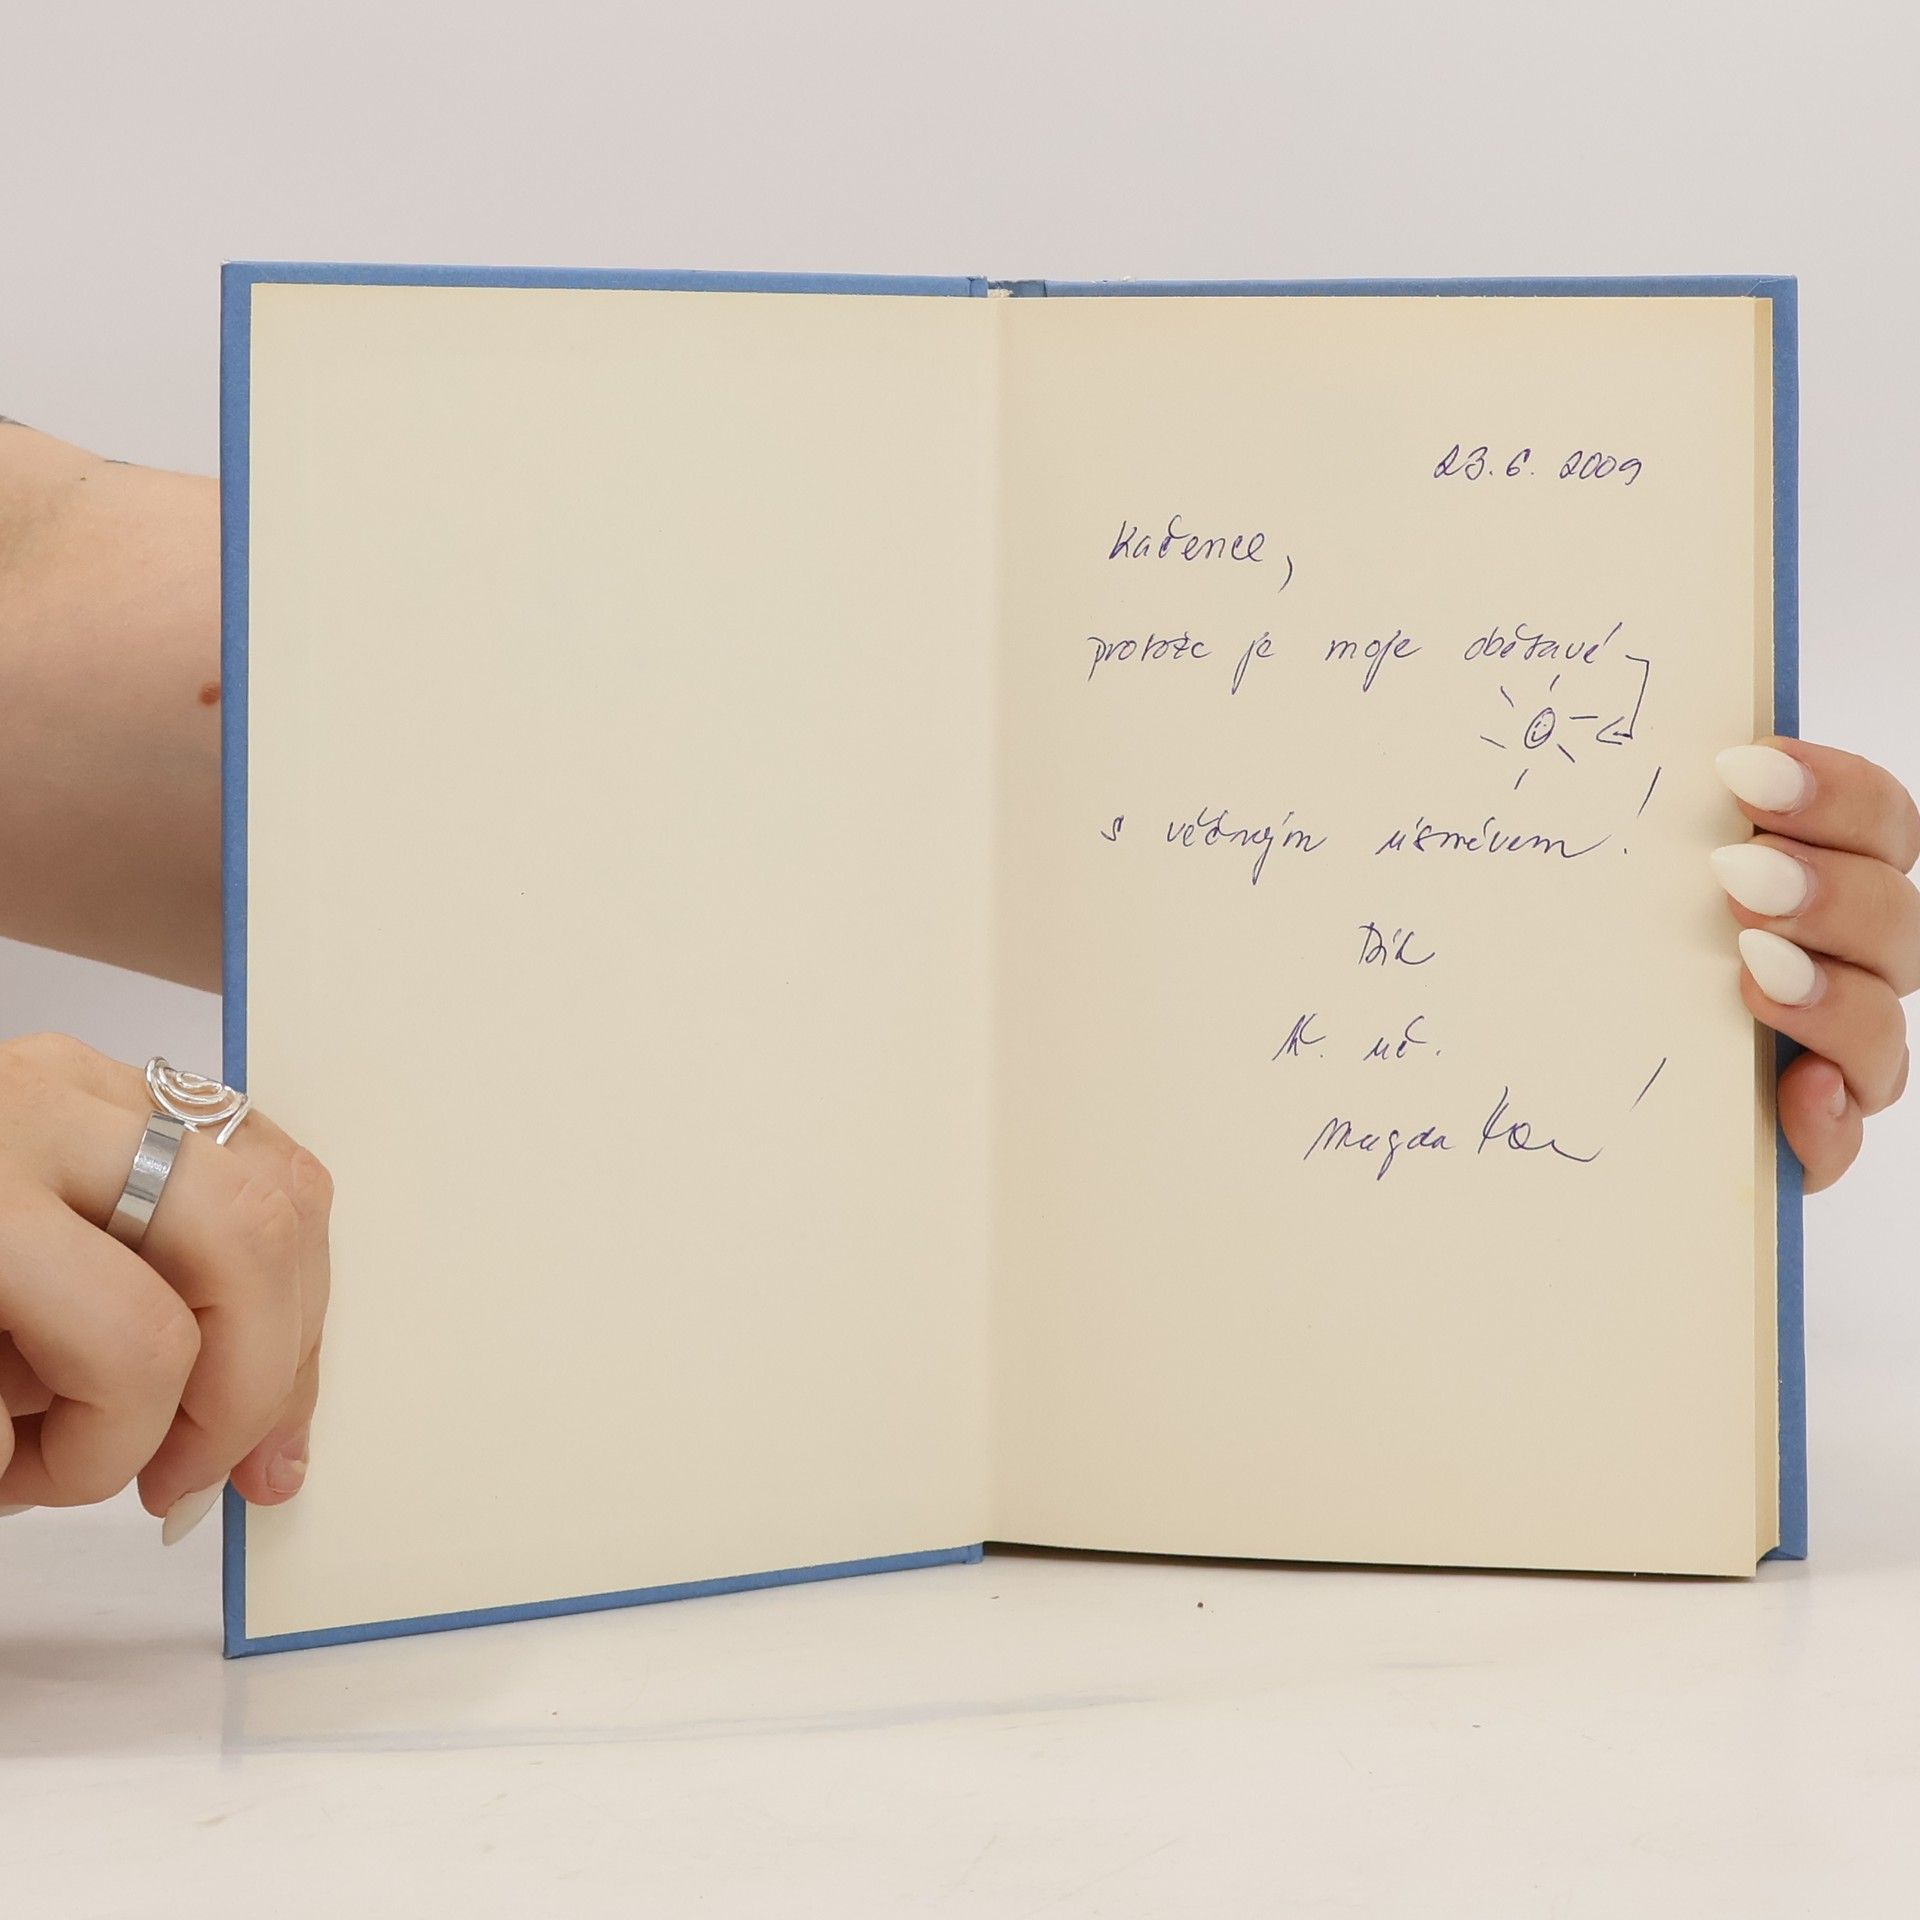 23.6. 2009
Kačence,
protože je moje obětavé
s věčným úsměvem!
Dík
tř. uč.
Magda